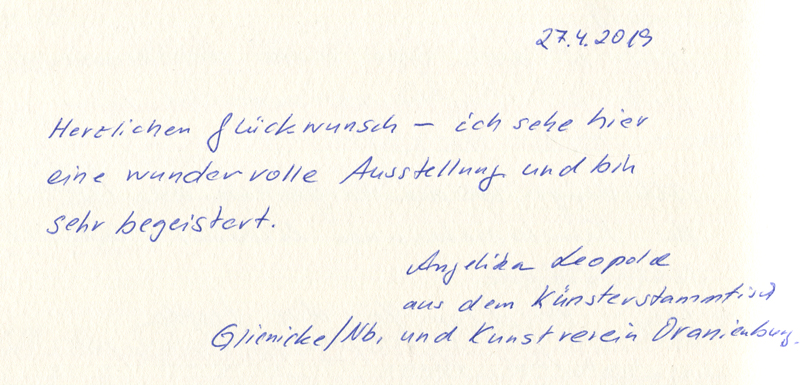 27.4.2019
Herzlichen Glückwunsch – ich sehe hier
eine wundervolle Ausstellung und bin
sehr begeistert.
Angelika Leopold
aus dem Künsterstammtisch
Glienicke/Nb. und Kunstverein Oranienburg.